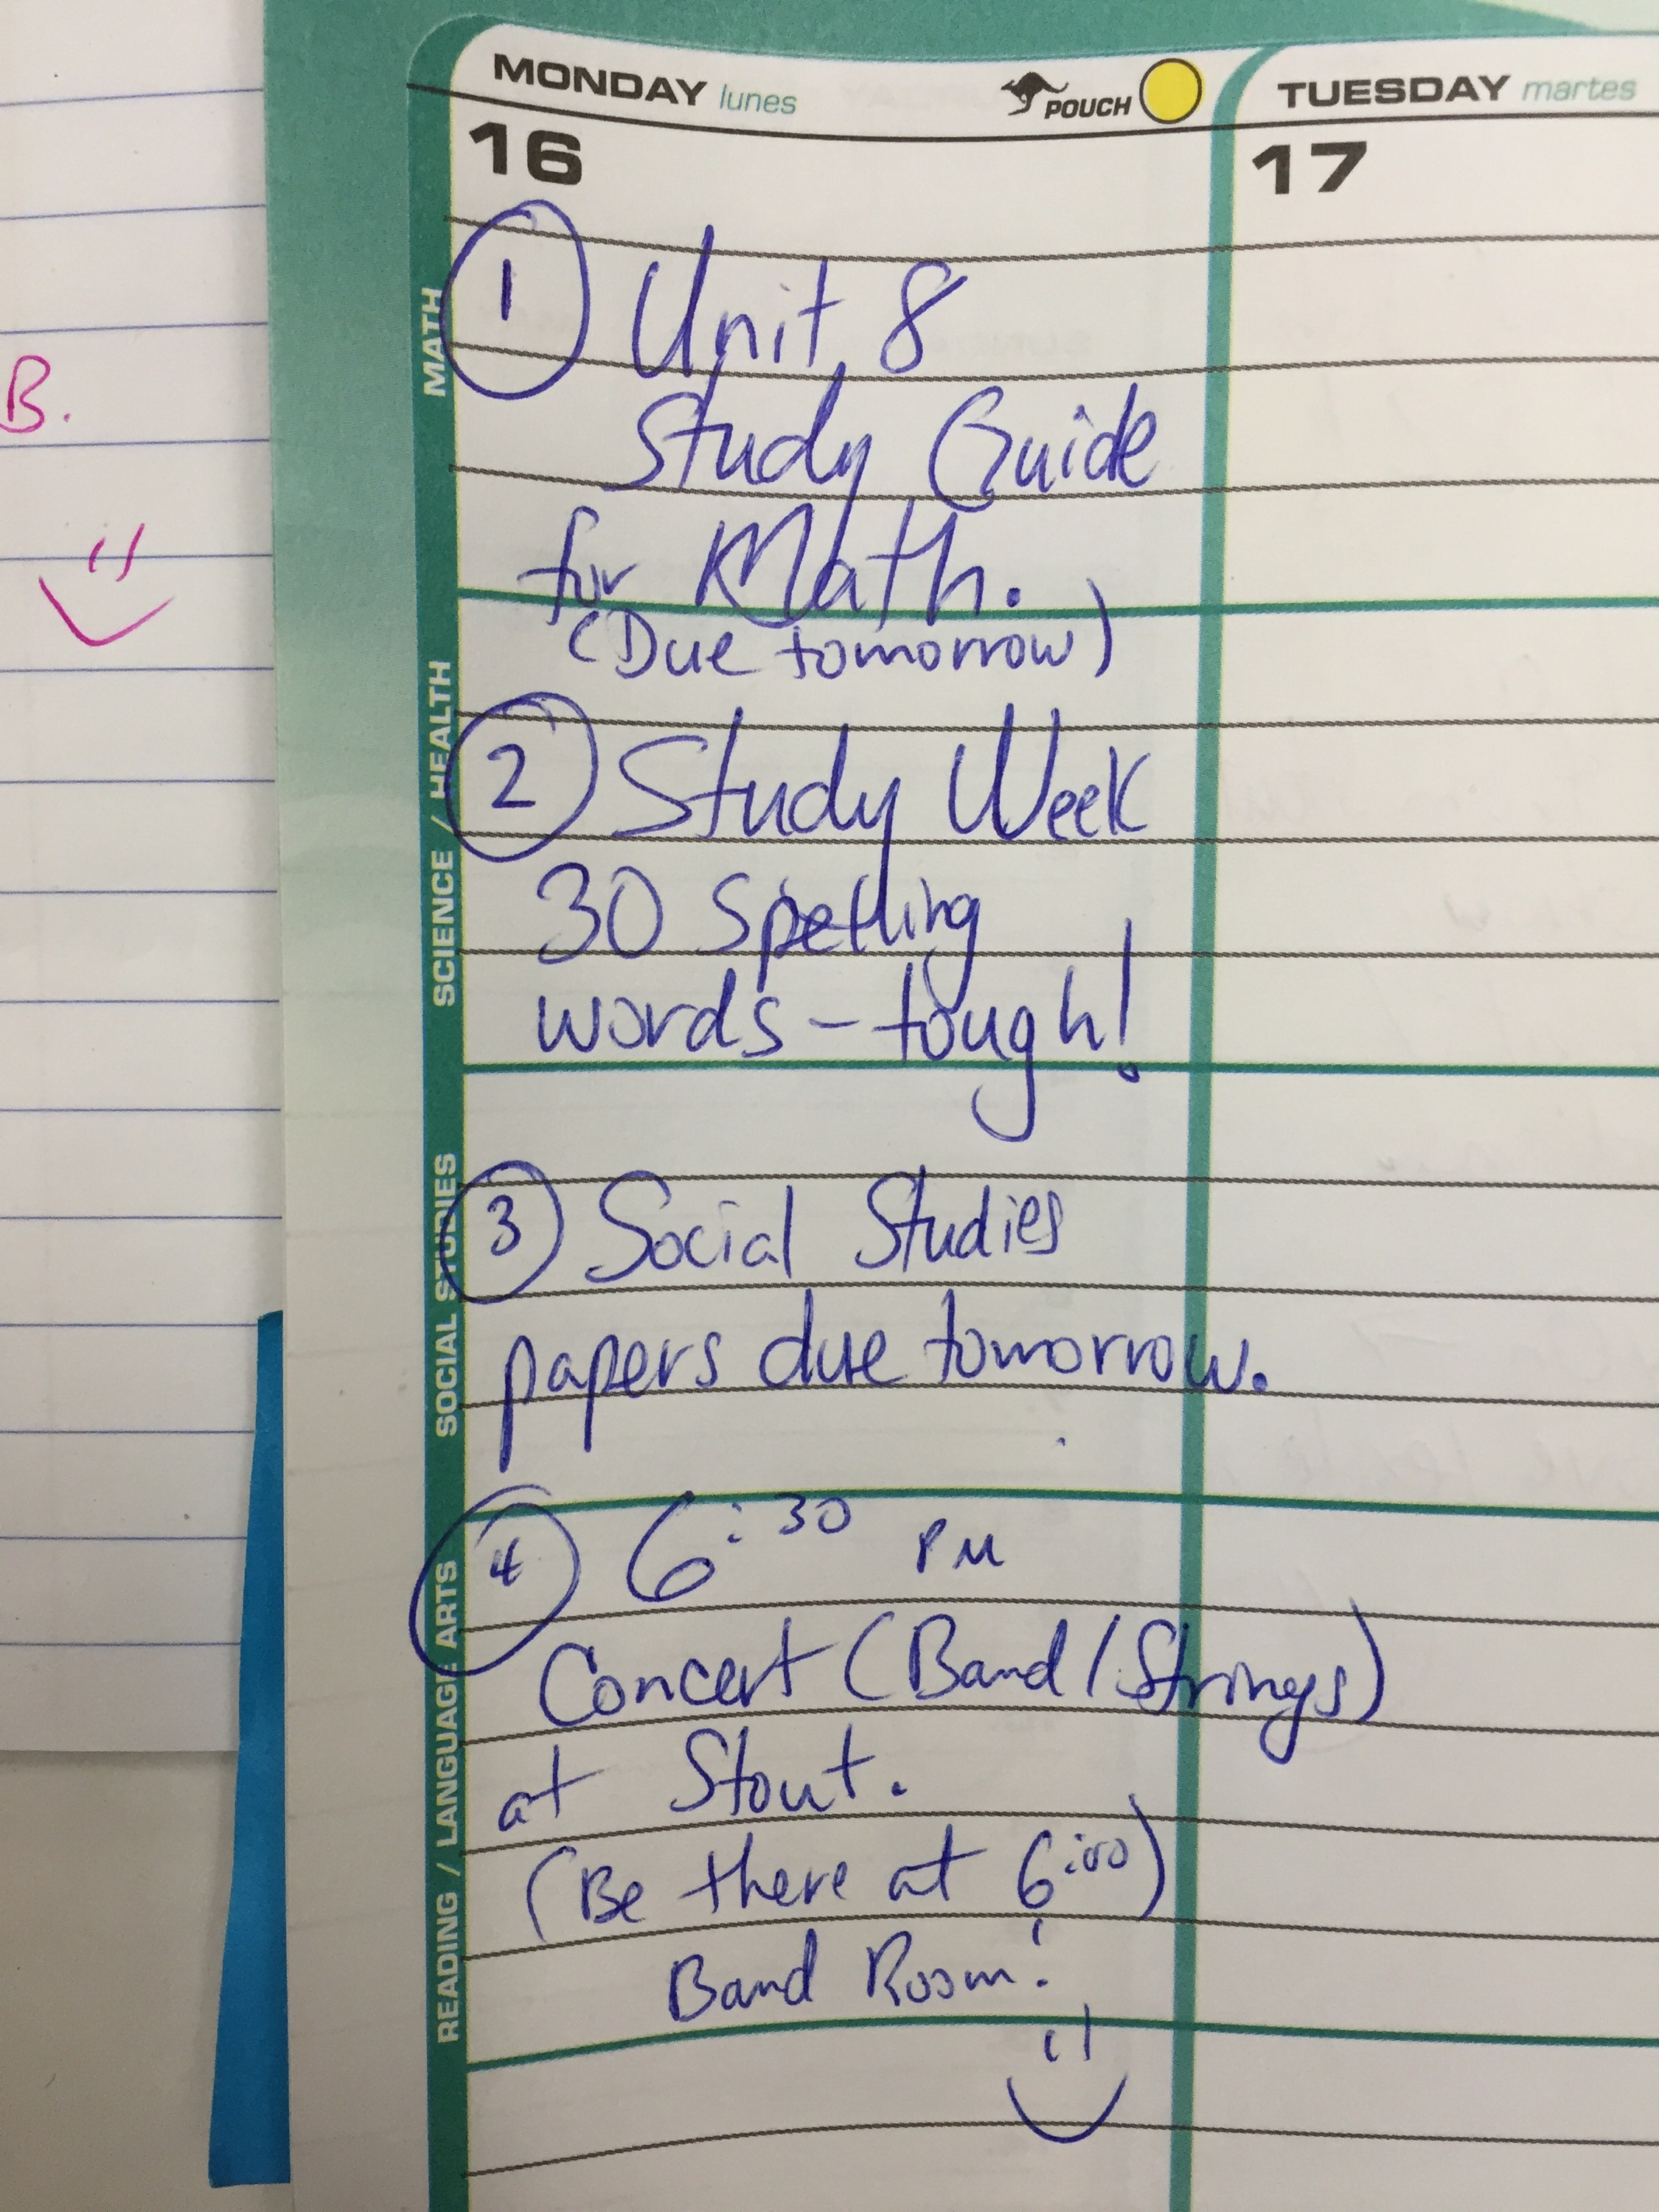 MONDAY lunes
POUCH
TUESDAY martes
16
17
B.
MATH
1 Unit 8
Study Guide
for Math.
(Due tomorrow)
SCIENCE / HEALTH
2 Study Week
30 Spelling
words - tough!
SOCIAL STUDIES
3 Social Studies
papers due tomorrow.
READING / LANGUAGE ARTS
4 6:30 PM
Concert (Band/Strings)
at Stout.
(Be there at 6:00)
Band Room!